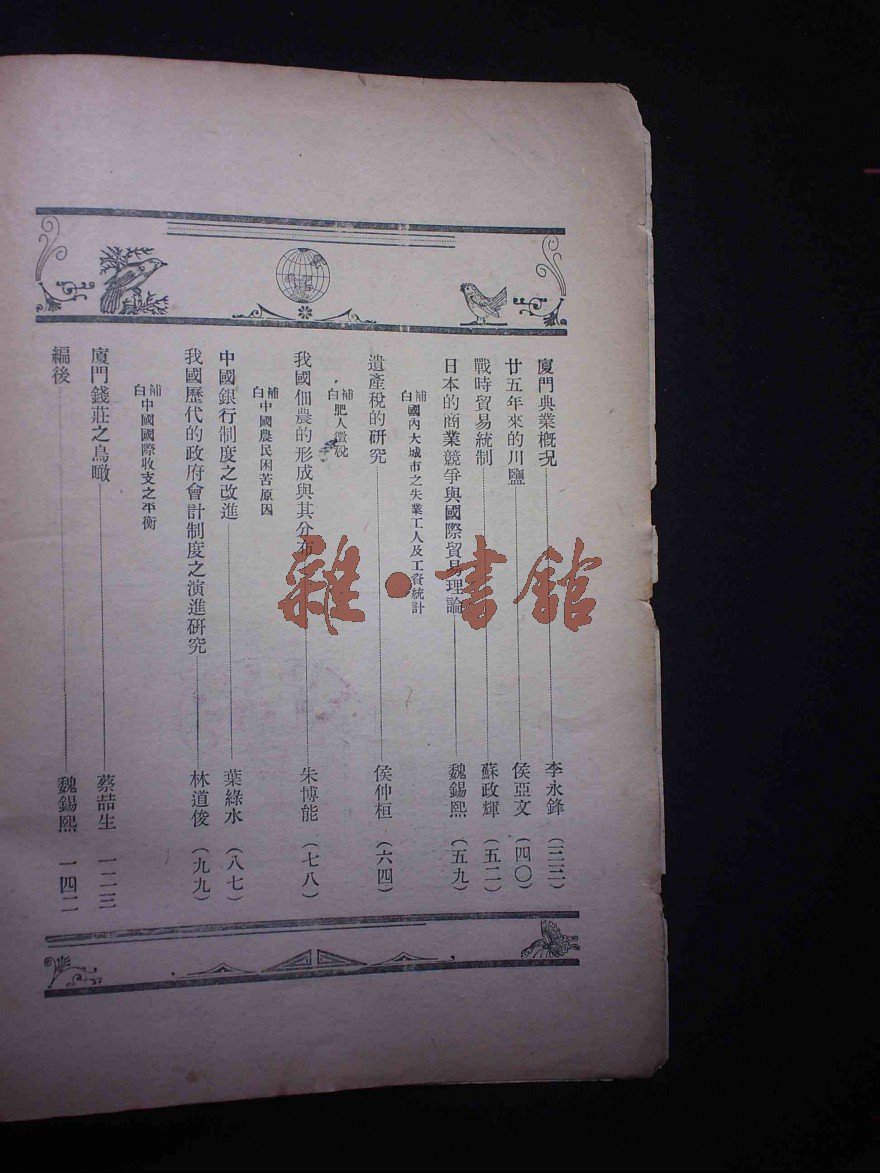 廈門典業概况 李永鋒 (三三)
廿五年來的川鹽 侯亞文 (四〇)
戰時貿易統制 蘇政輝 (五二)
日本的商業競爭與國際貿易理論 魏錫熙 (五九)
補白 國內大城市之失業工人及工資統計
遺產稅的研究 侯仲桓 (六四)
補白 肥人徵稅
我國佃農的形成與其分布 朱博能 (七八)
補白 中國農民困苦原因
中國銀行制度之改進 葉綠水 (八七)
我國歷代的政府會計制度之演進研究 林道俊 (九九)
補白 中國國際收支之平衡
廈門錢莊之鳥瞰 蔡喆生 一二三
編後 魏錫熙 一四二
雜·書館